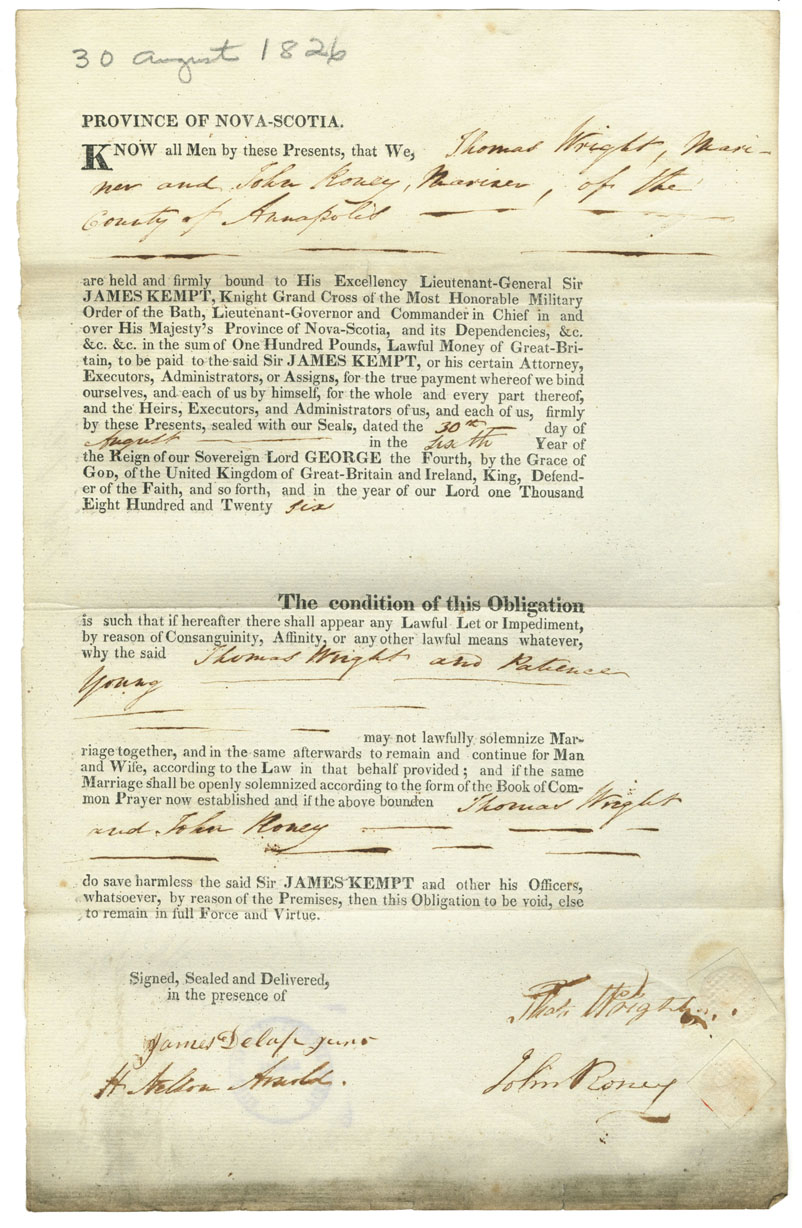 30 August 1826
PROVINCE OF NOVA-SCOTIA.
KNOW all Men by these Presents, that We, Thomas Wright, Mari-
ner and John Roney, Mariner, of the
County of Annapolis
are held and firmly bound to His Excellency Lieutenant-General Sir
JAMES KEMPT, Knight Grand Cross of the Most Honorable Military
Order of the Bath, Lieutenant-Governor and Commander in Chief in and
over His Majesty's Province of Nova-Scotia, and its Dependencies, &c.
&c. &c. in the sum of One Hundred Pounds, Lawful Money of Great-Bri-
tain, to be paid to the said Sir JAMES KEMPT, or his certain Attorney,
Executors, Administrators, or Assigns, for the true payment whereof we bind
ourselves, and each of us by himself, for the whole and every part thereof,
and the Heirs, Executors, and Administrators of us, and each of us, firmly
by these Presents, sealed with our Seals, dated the 30th day of
August in the sixth Year of
the Reign of our Sovereign Lord GEORGE the Fourth, by the Grace of
GOD, of the United Kingdom of Great-Britain and Ireland, King, Defend-
er of the Faith, and so forth, and in the year of our Lord one Thousand
Eight Hundred and Twenty six
The condition of this Obligation
is such that if hereafter there shall appear any Lawful Let or Impediment,
by reason of Consanguinity, Affinity, or any other lawful means whatever,
why the said Thomas Wright and Patience
Young
may not lawfully solemnize Mar-
riage together, and in the same afterwards to remain and continue for Man
and Wife, according to the Law in that behalf provided; and if the same
Marriage shall be openly solemnized according to the form of the Book of Com-
mon Prayer now established and if the above bounden Thomas Wright
and John Roney
do save harmless the said Sir JAMES KEMPT and other his Officers,
whatsoever, by reason of the Premises, then this Obligation to be void, else
to remain in full Force and Virtue.
Signed, Sealed and Delivered,
in the presence of
Thos Wright
James Delap junr
John Roney
H Nelson Arnold.